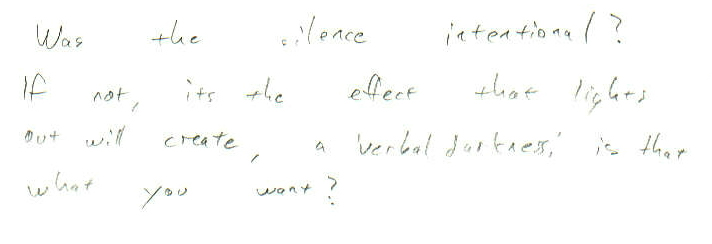 Was the silence intentional?
If not, its the effect that lights
out will create, a 'verbal darkness,' is that
what you want?